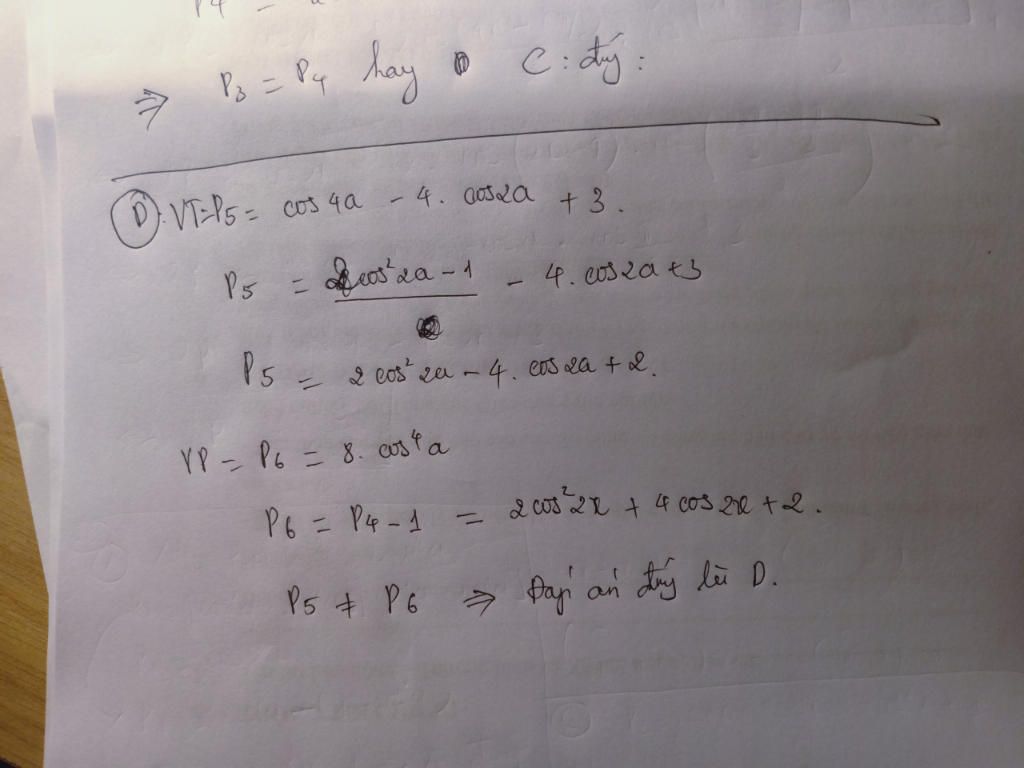 P4 =
⇒ P3 = P4 hay C: đúg :
D : VT = P5 = cos 4a - 4. cos2a + 3.
P5 = 2cos²2a - 1 - 4. cos2a + 3
P5 = 2 cos² 2a - 4. cos 2a + 2.
VP = P6 = 8. cos⁴a
P6 = P4 - 1 = 2cos²2x + 4 cos 2x + 2.
P5 ≠ P6 ⇒ Đáp án đúg là D.